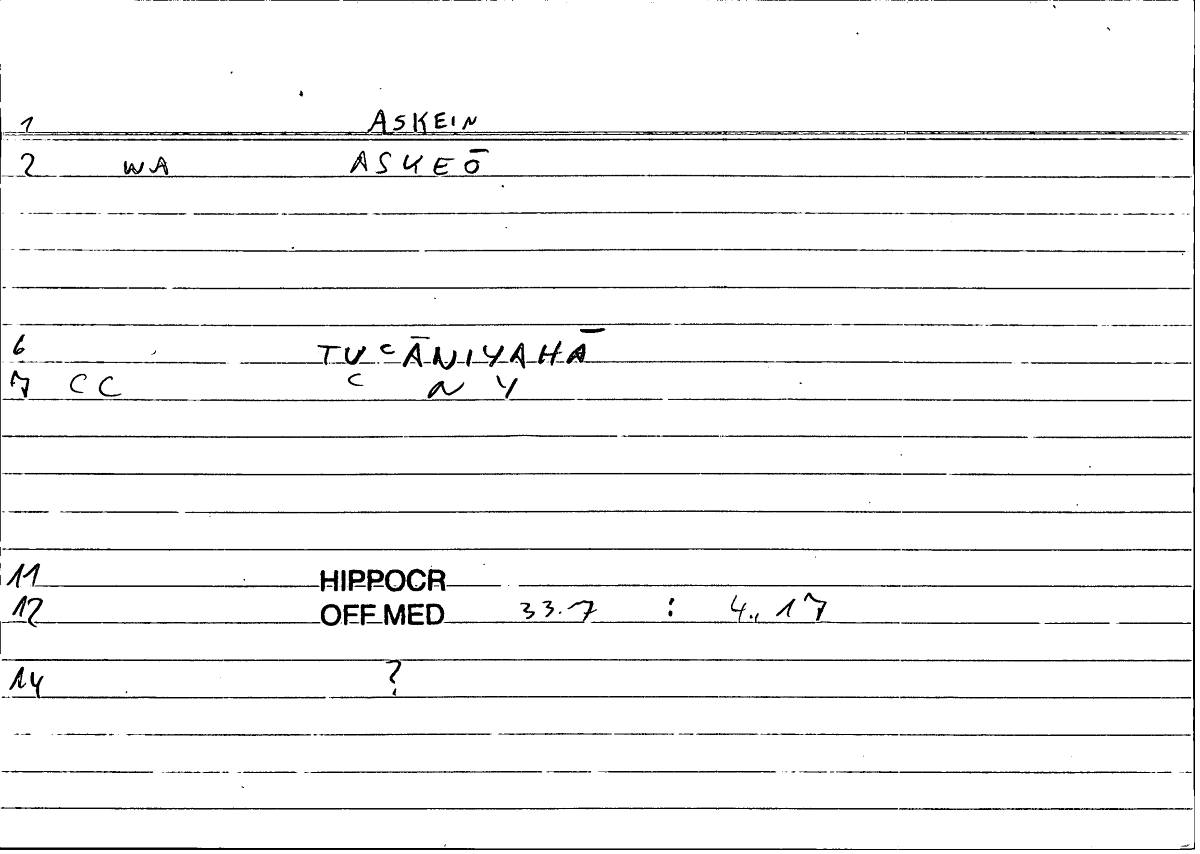 1 ASKEIN
2 WA ASKEŌ
6 TUᶜĀNIYAHĀ
7 CC ᶜ N Y
11 HIPPOCR
12 OFF MED 33.7 : 4., 17
14 ?